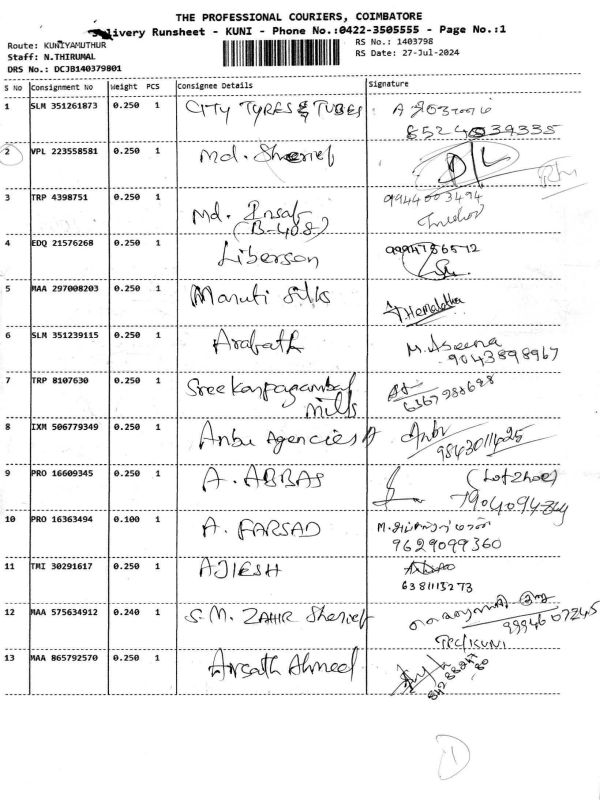 THE PROFESSIONAL COURIERS, COIMBATORE
Delivery Runsheet - KUNI - Phone No.:0422-3505555 - Page No.:1
Route: KUNIYAMUTHUR RS No.: 1403798
Staff: N.THIRUMAL RS Date: 27-Jul-2024
DRS No.: DCJB140379801
S No Consignment No Weight PCS Consignee Details Signature
1 SLM 351261873 0.250 1 CITY TYRES & TUBES
8524039335
2 VPL 223558581 0.250 1 Md. Sherief
3 TRP 4398751 0.250 1 Md. Insaf 9944003494
(B-408)
4 EDQ 21576268 0.250 1 Liberson 9994786572
5 MAA 297008203 0.250 1 Maruti Silks Hemalatha
6 SLM 351239115 0.250 1 Arafath M. Aseena
9043898967
7 TRP 8107630 0.250 1 Sree Karpagambal
Mills
8 IXM 506779349 0.250 1 Anbu Agencies Anbu
9843011425
9 PRO 16609345 0.250 1 A. ABBAS
10 PRO 16363494 0.100 1 A. FARSAD
9629099360
11 TMI 30291617 0.250 1 AJIESH
6381113273
12 MAA 575634912 0.240 1 S.M. ZAHIR Sherief
9994607245
TPC/KUNI
13 MAA 865792570 0.250 1 Arsath Ahmed
1